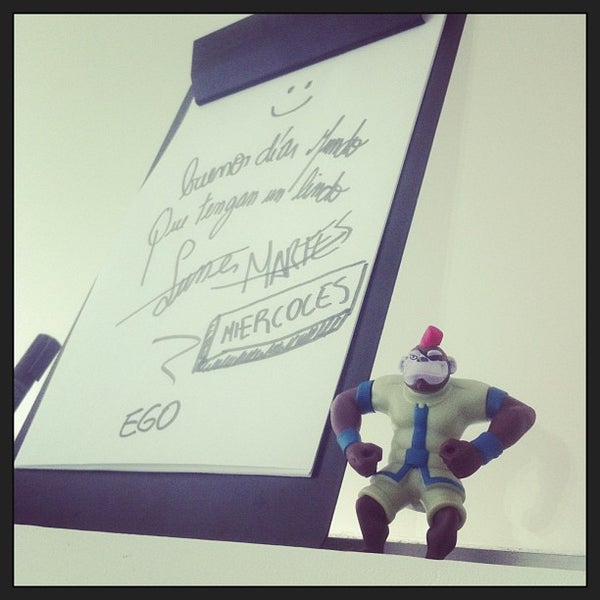 buenos días Mundo
Que tengan un lindo
Lunes MARTES
MIERCOLES
EGO